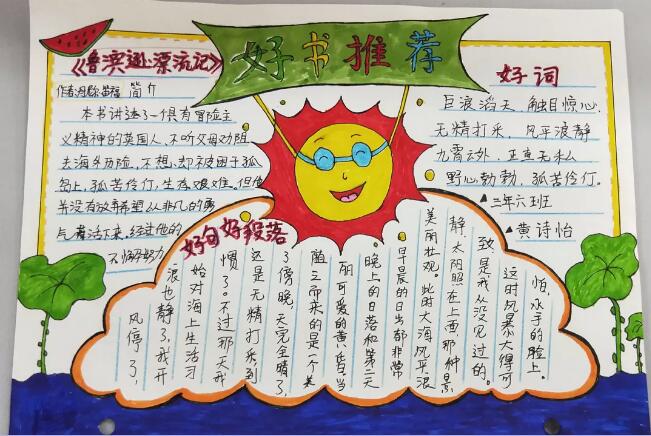 好书推荐
《鲁滨逊漂流记》
简介
本书讲述了一个具有冒险主
义精神的英国人,不听父母劝阻
去海外历险,不想,却被困于孤
岛上,孤苦伶仃,生存艰难。但他
并没有放弃希望从非凡的勇
气着活下来,经过他的
不懈努力
好词
巨浪滔天、触目惊心、
无精打采、风平浪静
九霄云外、正直无私
野心勃勃、孤苦伶仃。
▲三年六班
▲黄诗怡
好句好段落
风停了,
浪也静了,我开
始对海上生活习
惯了。不过那天我
这是无精打采到
了傍晚,天完全晴了,
随之而来的是一个美
丽可爱的黄昏。当
晚上的日落和第二天
早晨的日出都非常
美丽壮观。此时大海风平浪
静,太阳照在上面那种景
致是我从没见过的。
这时风暴大得可
怕,水手的脸上。